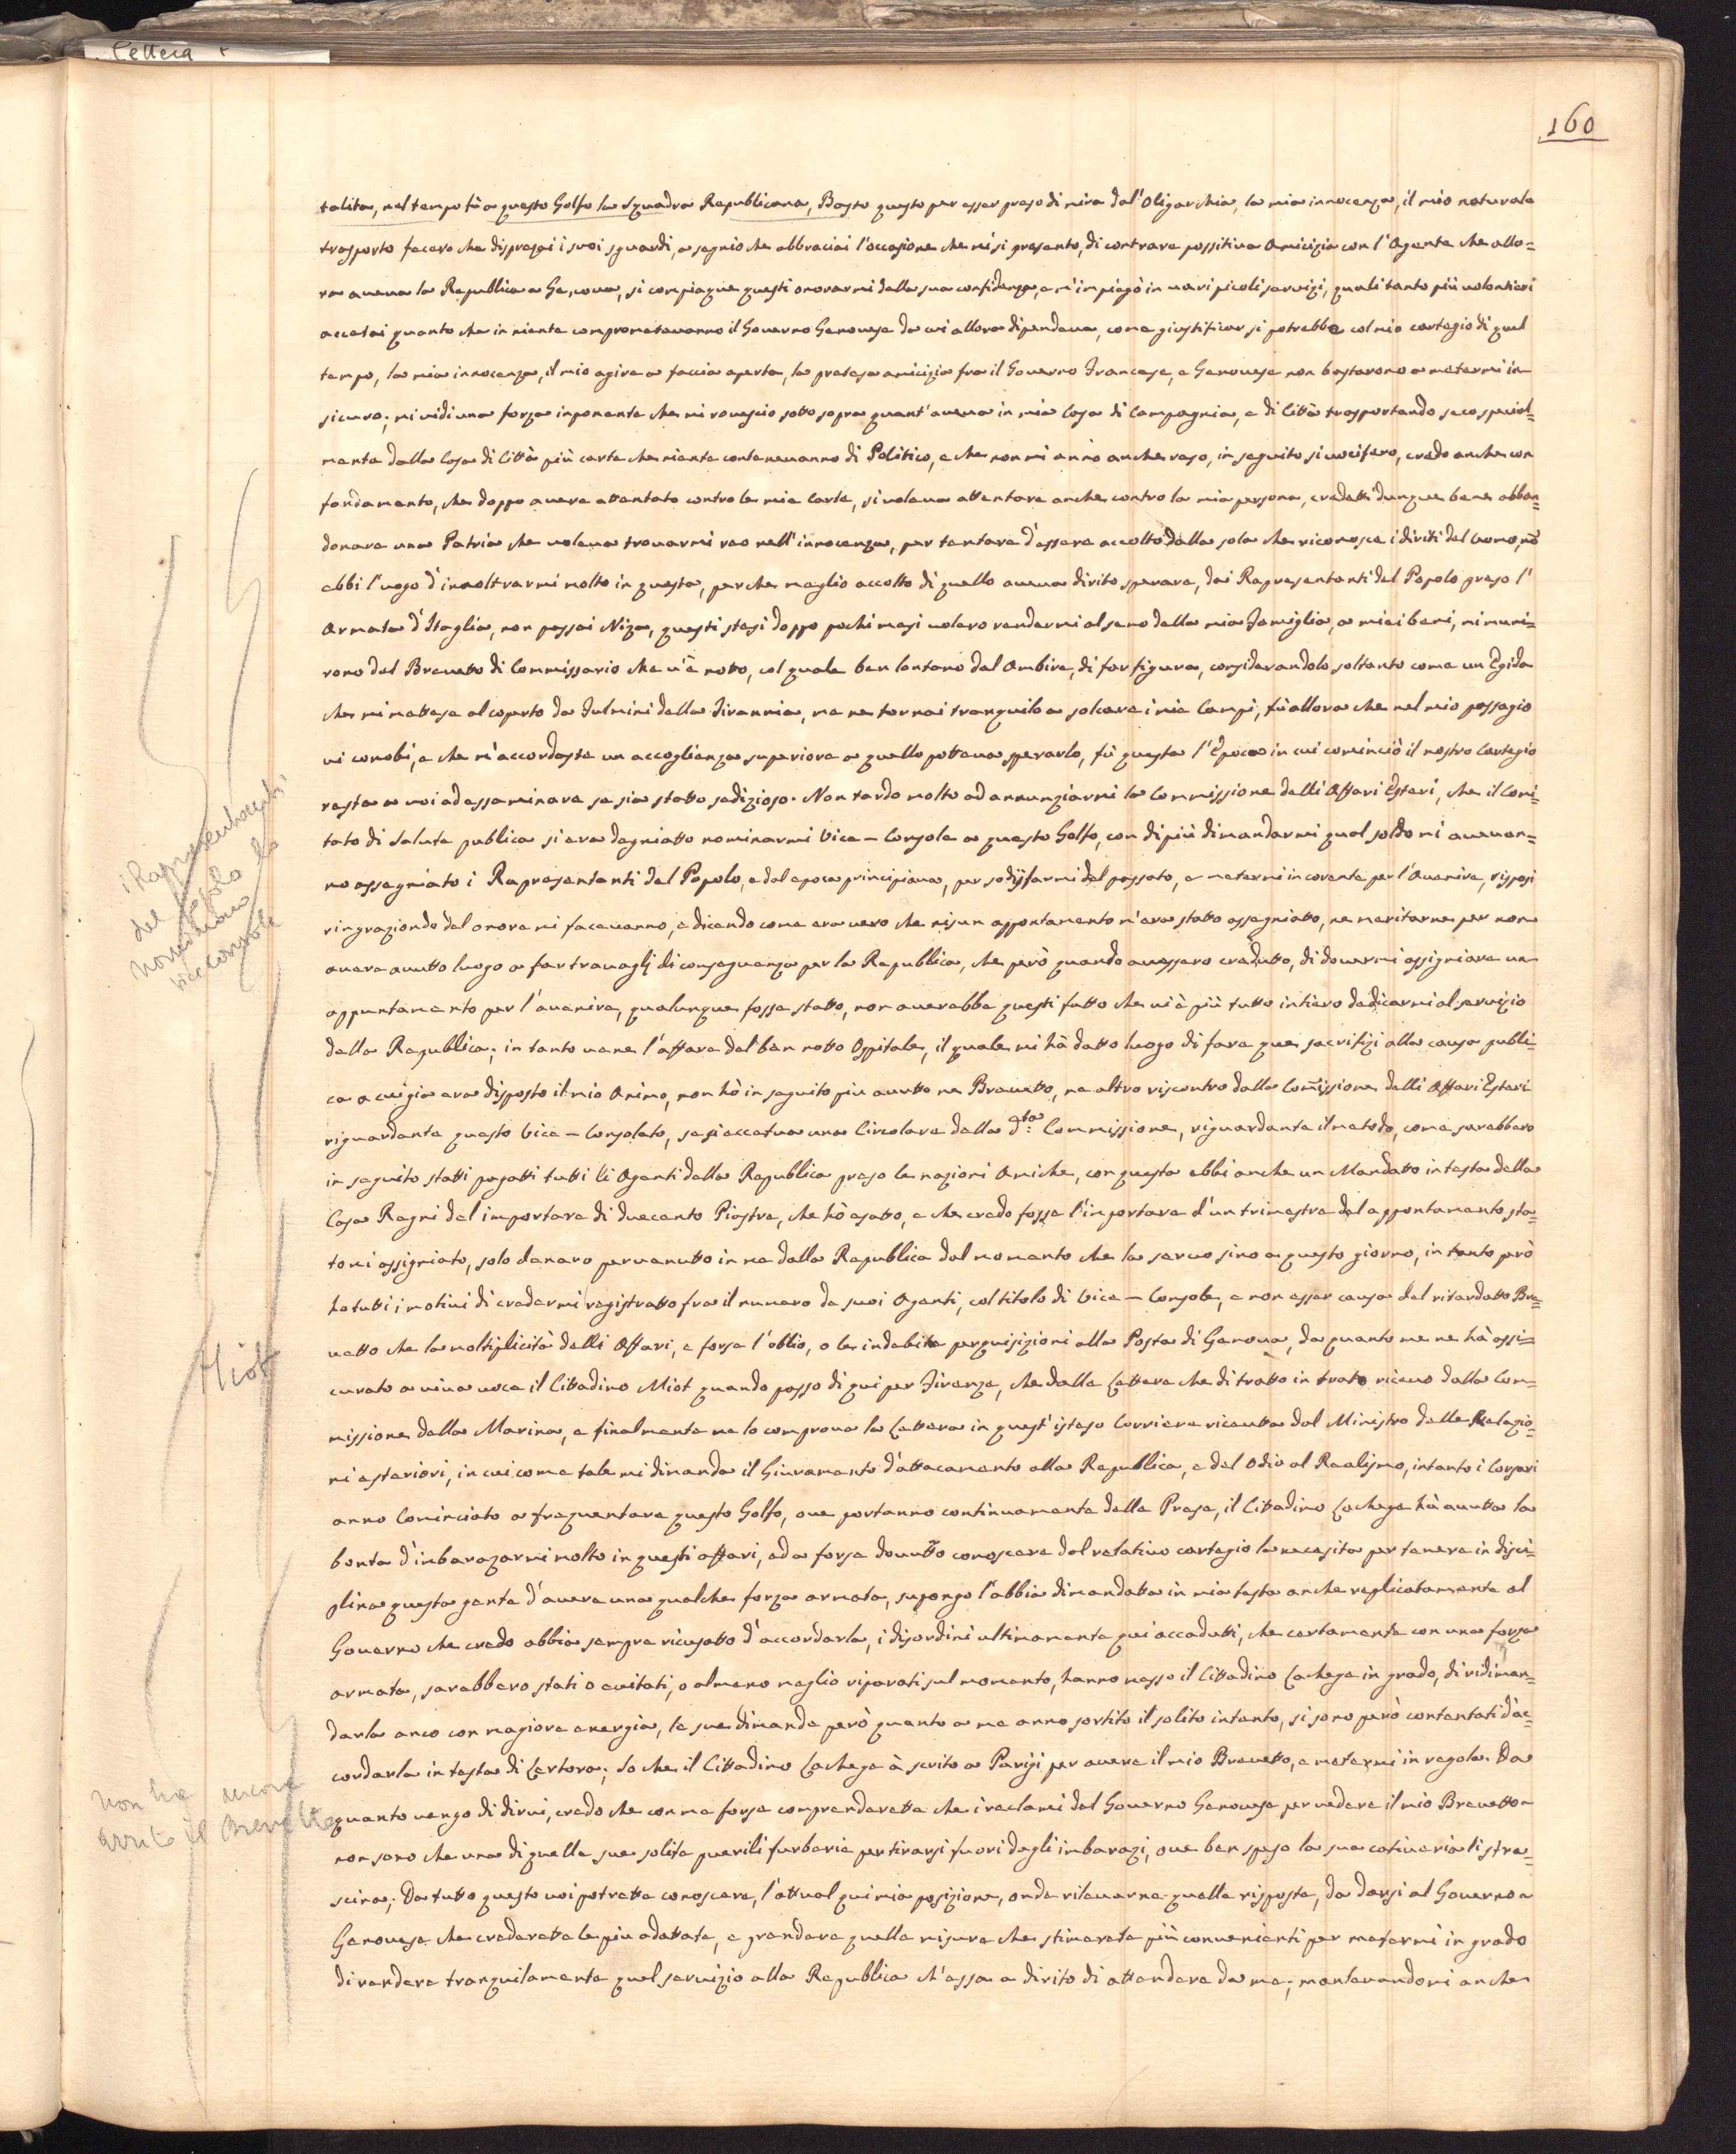 Lettera
160
talita, nel tempo fù a questo Golfo la Squadra Republicana, Basto questo per esser preso di mira dal'Oligarchia, la mia innocenza, il mio naturale
trasporto fecero che disprezai i suoi sguardi, a segnio che abbraciai l'occasione che mi si presento, di contrare possitiva Amicizia con l'Agente che allo=
ra aveva la Republica a Genova, si compiaque questi onorarmi della sua confidenza, e m'impiegò in vari picoli servizi, quali tanto più volontieri
accetai quanto che in niente comprometevanno il Governo Genovese da cui allora dipendeva, come giustificar si potrebbe col mio cartegio di quel
tempo, la mia innocenza, il mio agire a faccia aperta, la pretesa amicizia fra il Governo Francese, e Genovese non bastarono a metermi in
sicuro; mi vidi una forza inponente che mi rovescio sotto sopra quant'aveva in mia Casa di Campagnia, e di Città trasportando seco special=
mente dalla Casa di Città più carte che niente contenevanno di Politico, e che non mi ànno anche reso, in seguito si vocifero, credo anche con
fondamento, che doppo avere attentato contro le mie Carte, si voleva attentare anche contro la mia persona, credetti dunque bene abban=
donare una Patria che voleva trovarmi reo nell'innocenza, per tentare d'essere accolto dalla sola che riconosce i diriti del Uomo, nõ
ebbi l'uogo d'innoltrarmi molto in questa, perche meglio accolto di quello aveva dirito sperare, dai Rapresentanti del Popolo preso l'
Armata d'Itaglia, non passai Niza, questi stesi doppo pochi mesi volero rendermi al seno della mia Famiglia, a miei beni, mi muni=
rono del Brevetto di Commissario che v'è notto, col quale ben lontano dal Ambire, di far figura, considerandolo soltanto come un Egida
che mi mettese al coperto da Fulmini della Tirannia, me ne tornai tranquilo a solcare i mie Campi, fù allora che nel mio passagio
vi conobi, e che m'accordaste un accoglienza superiore a quello potteva sperarlo, fù questa l'Epoca in cui cominciò il nostro Cartegio
resta a voi ad essaminare se sia statto sedizioso. Non tardo molto ad annunziarmi la Commissione delli Affari Esteri, che il Comi=
tato di Salute publica si era degniatto nominarmi Vice-Console a questo Golfo, con di più dimandarmi qual soldo mi avevan=
no assegniato i Rapresentanti del Popolo, e dal epoca principiava, per sodisfarmi del passato, e metermi in corente per l'Avenire, risposi
ringraziando del onore mi facevanno, e dicendo come era vero che nisun appontamento m'era statto assegniatto, ne meritarne per non
avere avutto luogo a far travaglj di conseguenza per la Republica, che però quando avessero credutto, di dovermi assigniare un
appuntamento per l'avenire, qualunque fosse statto, non averebbe questi fatto che vi è più tutto intiero dedicarmi al servizio
della Republica; in tanto vene l'affare del ben notto Ospitale, il quale mi hà datto luogo di fare que sacrifizi alla causa publi=
ca a cui già era disposto il mio Animo, non hò in seguito più avutto ne Brevetto, ne altro riscontro dalla Comissione delli Affari Esteri
riguardante questo Vice-Consolato, se si eccetua una Circolare della d:ta Commissione, riguardante il metodo, come sarebbero
in seguito statti pagatti tutti li Agenti della Republica preso le nazioni Amiche, con questa ebbi anche un Mandatto in testa della
Casa Regni del importare di duecento Piastre, che hò esatto, e che credo fosse l'importare d'un trimestre del appontamento sta=
tomi assigniato, solo denaro pervenutto in me dalla Republica dal momento che la servo sino a questo giorno, in tanto però
ho tutti i motivi di credermi registratto fra il numero de suoi Agenti, col titolo di Vice-Console, e non esser causa del ritardatto Bre=
vetto che la moltiplicità delli Affari, e forse l'oblio, o le indebite perquisizioni alla Posta di Genova, da quanto me ne hà assi=
curato a viva voce il Cittadino Miot quando passo di qui per Firenze, che dalle Lettere che di tratto in trato ricevo dalla Com=
missione della Marina, e finalmente me lo comprova la Lettera in quest'isteso Corriere ricevuta dal Ministro delle Relazio=
ni esteriori, in cui come tale mi dimanda il Giuramento d'attacamento alla Republica, e del Odio al Realismo, intanto i Corsari
anno Cominciato a frequentare questo Golfo, ove portanno continuamente delle Prese, il Cittadino Lachese hà avutta la
bonta d'imbarazarmi molto in questi affari, ed a forse dovutto conoscere dal relativo cartegio la necesita per tenere in disci=
plina questa gente d'avere una qualche forza armata, supongo l'abbia dimandatta in mia testa anche replicatamente al
Governo che credo abbia sempre ricusatto d'accordarla, i disordini ultimamente qui accadutti, che certamente con una forza
armata, sarebbero stati o evitati, o almeno meglio riparati sul momento, hanno messo il Cittadino Lachese in grado, di ridiman=
darla anco con magiore energia, le sue dimande però quanto a me anno sortito il solito intento, si sono però contentati d'ac=
cordarla in testa di Certora; So che il Cittadino Lachese à scrito a Parigi per avere il mio Brevetto, e metermi in regola. Da
quanto vengo di dirvi, credo che con me forse comprenderette che i reclami del Governo Genovese per vedere il mio Brevetto
non sono che una di quelle sue solite puerili furberie per tirarsi fuori degli imbarazi, ove ben speso la sua cativeria li stra=
scina; Da tutto questo voi potrette conoscere, l'attual qui mia posizione, onde rilevarne quella risposta, da darsi al Governo
Genovese che crederette le piu adattate, e prendere quelle misure che stimarete più convenienti per metermi in grado
di rendere tranquilamente quel servizio alla Republica ch'essa a dirito di attendere da me; mantenendomi anche
i Rapresentanti
del popolo lo
nominano
vice console
Miot
non ha ancora
avuto il Brevetto